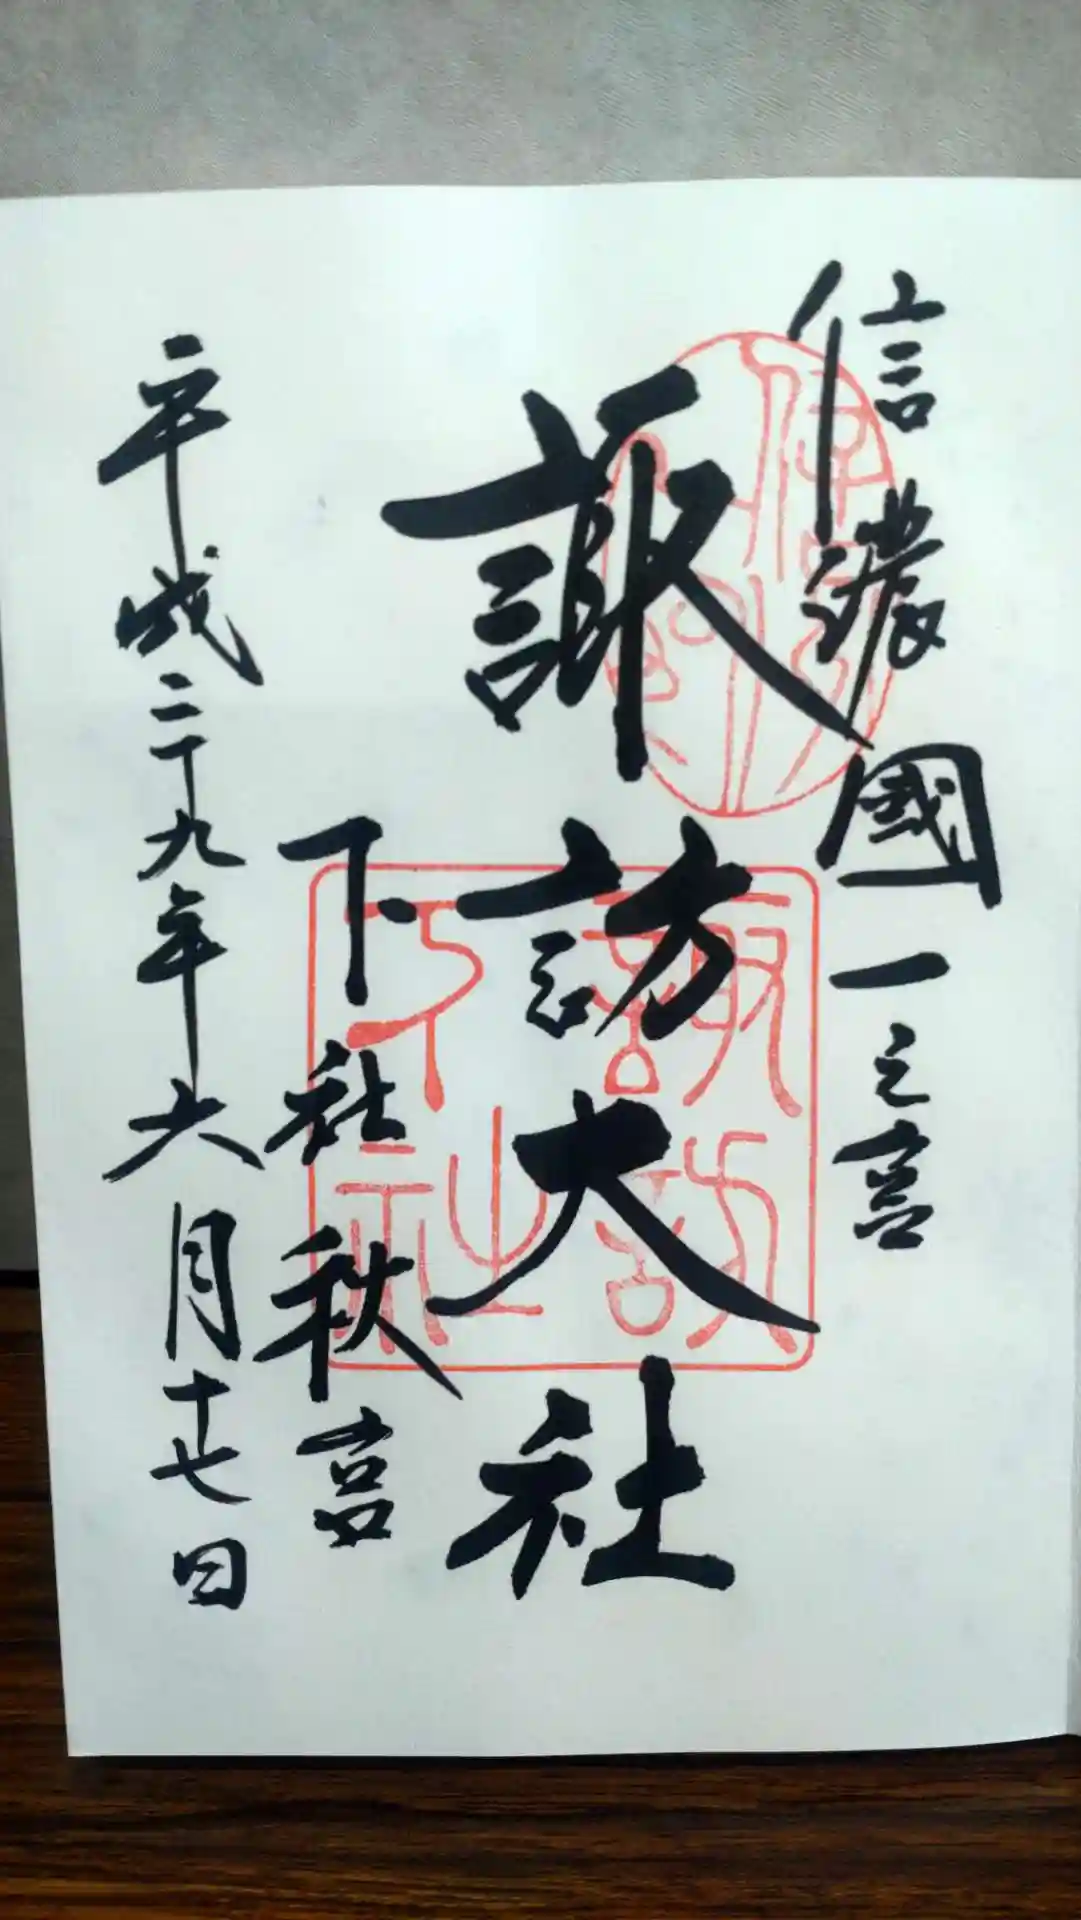 信濃國一之宮
諏訪大社
下社秋宮
平成二十九年六月十七日
諏訪
下之社